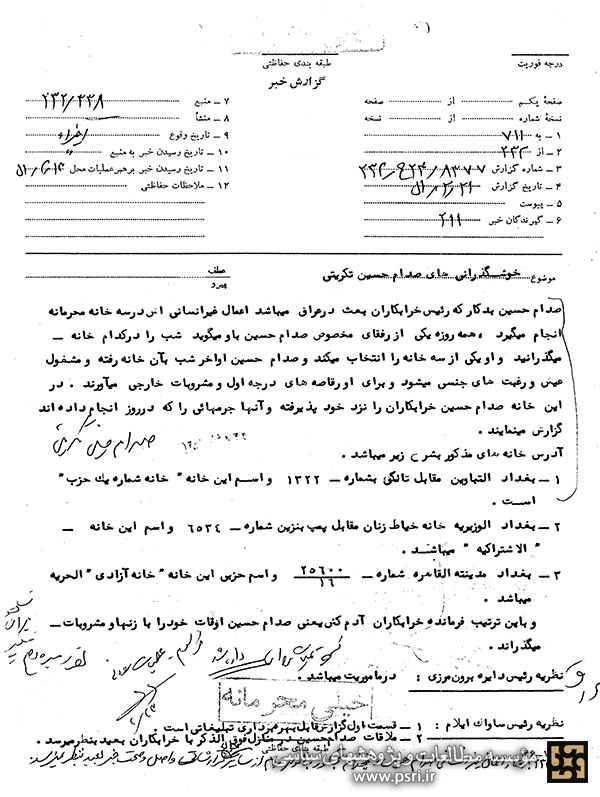 طبقه بندی حفاظتی
درجه فوریت
گزارش خبر
صفحهٔ یکم از صفحه
نسخهٔ شماره از نسخه
۱ ـ به ۷۱۱
۲ ـ از ۲۳۲
۳ ـ شماره گزارش
۴ ـ تاریخ گزارش
۵ ـ پیوست
۶ ـ گیرندگان خبر ۲۱۱
۷ ـ منبع
۸ ـ منشأ
۹ ـ تاریخ وقوع اخیراً
۱۰ ـ تاریخ رسیدن خبر به منبع
۱۱ ـ تاریخ رسیدن خبر برهبر عملیات محل
۱۲ ـ ملاحظات حفاظتی
موضوع خوشگذرانی های صدام حسین تکریتی
عطف
پیرو
صدام حسین بدکار که رئیس خرابکاران بعث در عراق میباشد اعمال غیرانسانی اش در سه خانه محرمانه
انجام میگیرد ، همه روزه یکی از رفقای مخصوص صدام حسین باو میگوید شب را در کدام خانه ـ
میگذرانید و او یکی از سه خانه را انتخاب میکند و صدام حسین اواخر شب بآن خانه رفته و مشغول
عیش و رغبت های جنسی میشود و برای او رقاصه های درجه اول و مشروبات خارجی میآورند . در
این خانه صدام حسین خرابکاران را نزد خود پذیرفته و آنها جرمهائی را که در روز انجام داده اند
گزارش مینمایند .
صدام حسین تکریتی
آدرس خانه های مذکور بشرح زیر میباشد .
۱ ـ بغداد التباوین مقابل تانکی بشماره ـ ۱۳۲۲ و اسم این خانه " خانه شماره یك حزب "
است .
۲ ـ بغداد الوزیریه خانه خیاط زنان مقابل پمپ بنزین شماره ـ ۶۵۳۴ و اسم این خانه ـ
" الاشتراکیه " میباشد .
۳ ـ بغداد مدینته القاهره شماره ـ ۲۵۶۰۰/۱۶ و اسم حزبی این خانه " خانه آزادی " الحریه
میباشد .
و باین ترتیب فرمانده خرابکاران آدم کش یعنی صدام حسین اوقات خود را با زنها و مشروبات ـ
میگذراند .
نظریه رئیس دایره برون مرزی : در ماموریت میباشد .
خیلی محرمانه
نظریه رئیس ساواك ایلام : ۱ ـ قسمت اول گزارش قابل بهره برداری تبلیغاتی است .
۲ ـ ملاقات صدام حسین در منازل فوق الذکر با خرابکاران بعید بنظر میرسد .
طبقه بندی حفاظتی
مؤسسه مطالعات و پژوهشهای سیاسی
www.psri.ir